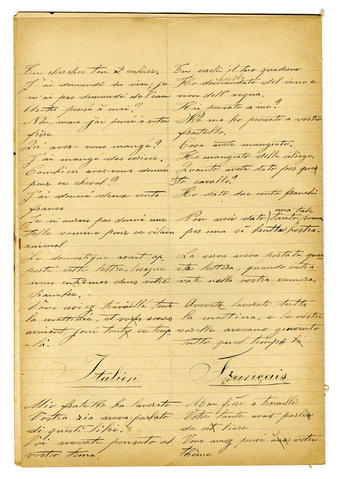 Tu cherches ton cahier.
J'ai demandé du vin, je
n'ai pas demandé de l'eau
As-tu pensé à moi?
Non mais j'ai pensé à votre
frère
Qu'avez-vous mangé?
J'ai mangé des cerises.
Combien avez-vous donné
pour ce cheval?
J'ai donné deux cents
francs
Je n'aurais pas donné une
telle somme pour ce vilain
animal
Le domestique avait ap
porté cette lettre, lorsque
nous entrâmes dans votre
chambre.
Vous avez travaillé toute
la matinée, et vos soeurs
avaient joué tout ce temps
là.
Tu cerchi il tuo quaderno
Ho domandato del vino e
non dell'acqua.
Hai pensato a me?
No ma ho pensato a vostro
fratello.
Cosa avete mangiato.
Ho mangiato delle ciliege.
Quanto avete dato per que
sto cavallo?
Ho dato due cento franchi
una tale
Non avrei dato somma
per una sì brutta bestia
La serva aveva portata que
sta lettera, quando entra
vate nella vostra camera.
Avevate lavorato tutta
la mattina, e le vostre
sorelle avevano giuocato
tutto quel tempo là
Italien
Français
Mio fratello ha lavorato
Vostra zia aveva parlato
di questi libri.
Voi avevate pensato al
vostro tema.
Mon frère a travaillé
Votre tante avait parlé
de cet livre
Vous aviez pensé à votre
thème